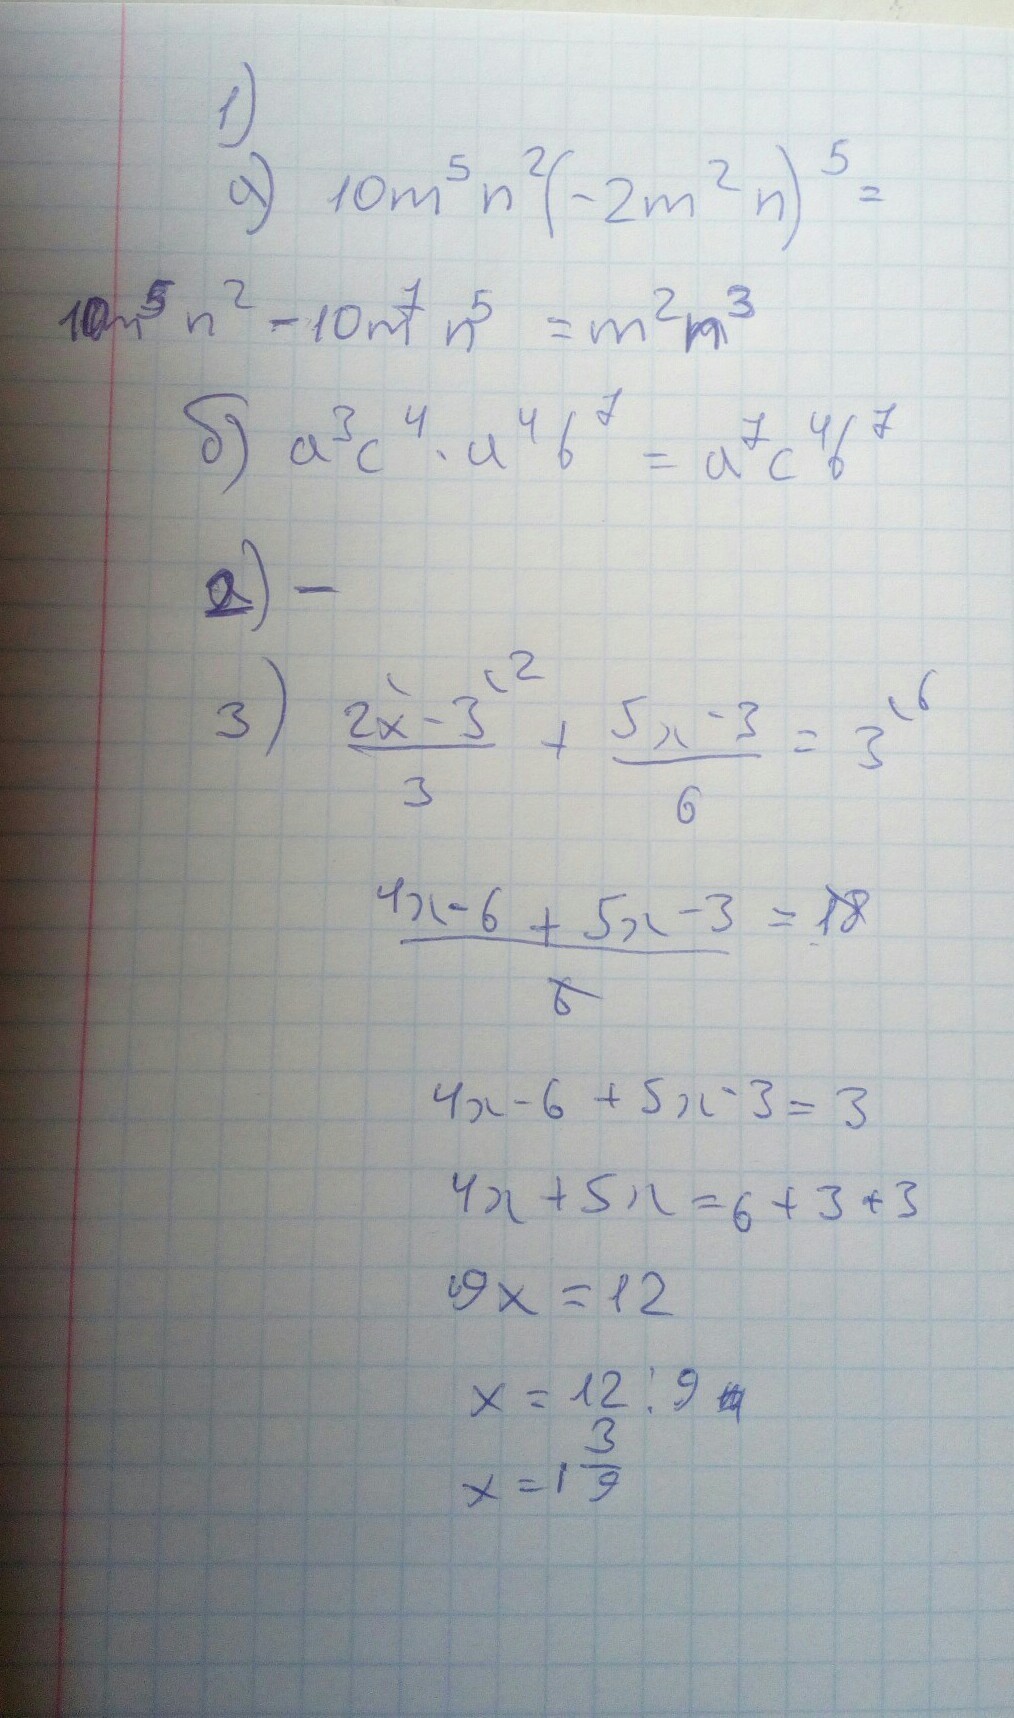 1)
а) 10m⁵n²(-2m²n)⁵=
10m⁵n² -10m⁷n⁵ =m²n³
б) a³c⁴·a⁴b⁷ = a⁷c⁴b⁷
2) -
3) (2x-3)/3 ⁽² + (5x-3)/6 = 3⁽⁶
(4x-6 + 5x-3)/6 = 18
4x-6 +5x-3=3
4x+5x=6+3+3
9x=12
x=12:9
x=1 3/9